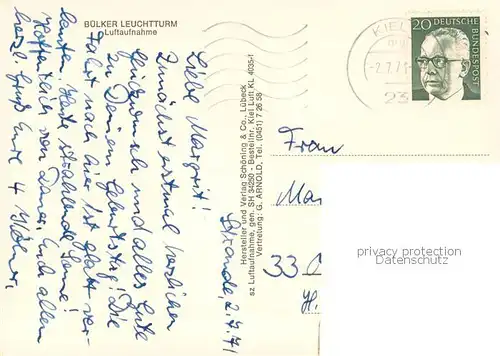 BÜLKER LEUCHTTURM
Luftaufnahme
Strande, 2.7.71
Liebe Margrit!
Zunächst einmal herzlichen
Glückwunsch und alles Gute
zu Deinem Geburtstag! Die
Fahrt nach hier ist glatt ver-
laufen. Heute strahlende Sonne!
Hoffentlich von Dauer. Euch allen
herzl. Grüße Eure 4
Hersteller und Verlag Schöning & Co., Lübeck
sz Luftaufnahme, gen. SH 34250 - Bestellnr. Kiel Luft KL 4035-1
Vertretung: G. ARNOLD, Tel. (0451) 7 26 58
KIEL
-2.7.71
23
20 DEUTSCHE
BUNDESPOST
Frau
Mar
33
H.
privacy protection
Datenschutz